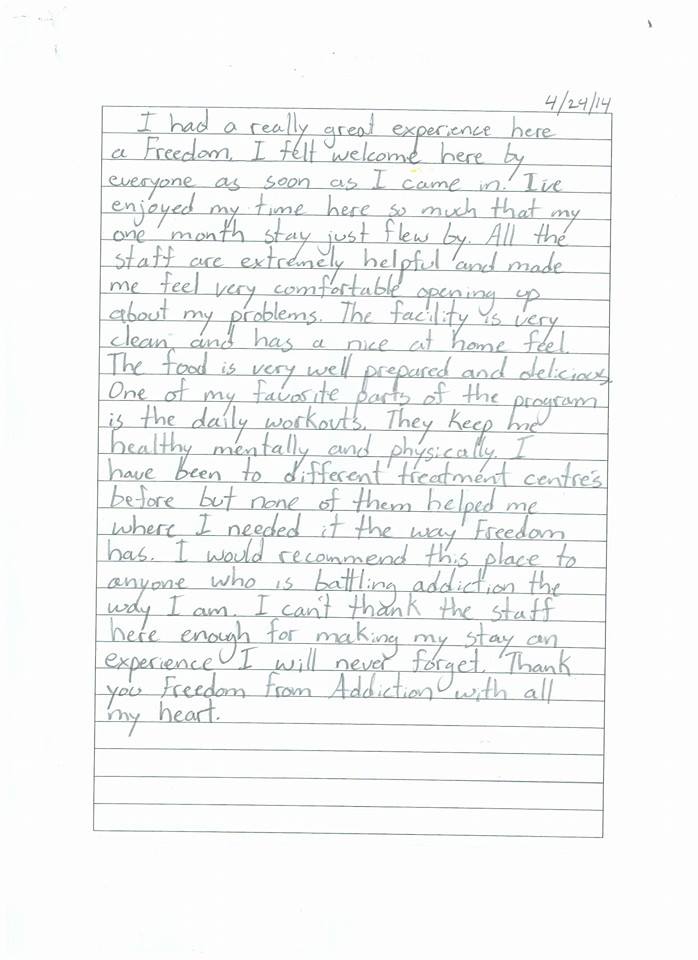 4/24/14
I had a really great experience here
a Freedom. I felt welcome here by
everyone as soon as I came in. I've
enjoyed my time here so much that my
one month stay just flew by. All the
staff are extremely helpful and made
me feel very comfortable opening up
about my problems. The facility is very
clean and has a nice at home feel.
The food is very well prepared and delicious.
One of my favorite parts of the program
is the daily workouts. They keep me
healthy mentally and physically. I
have been to different treatment centre's
before but none of them helped me
where I needed it the way Freedom
has. I would recommend this place to
anyone who is battling addiction the
way I am. I can't thank the staff
here enough for making my stay an
experience I will never forget. Thank
you Freedom From Addiction with all
my heart.